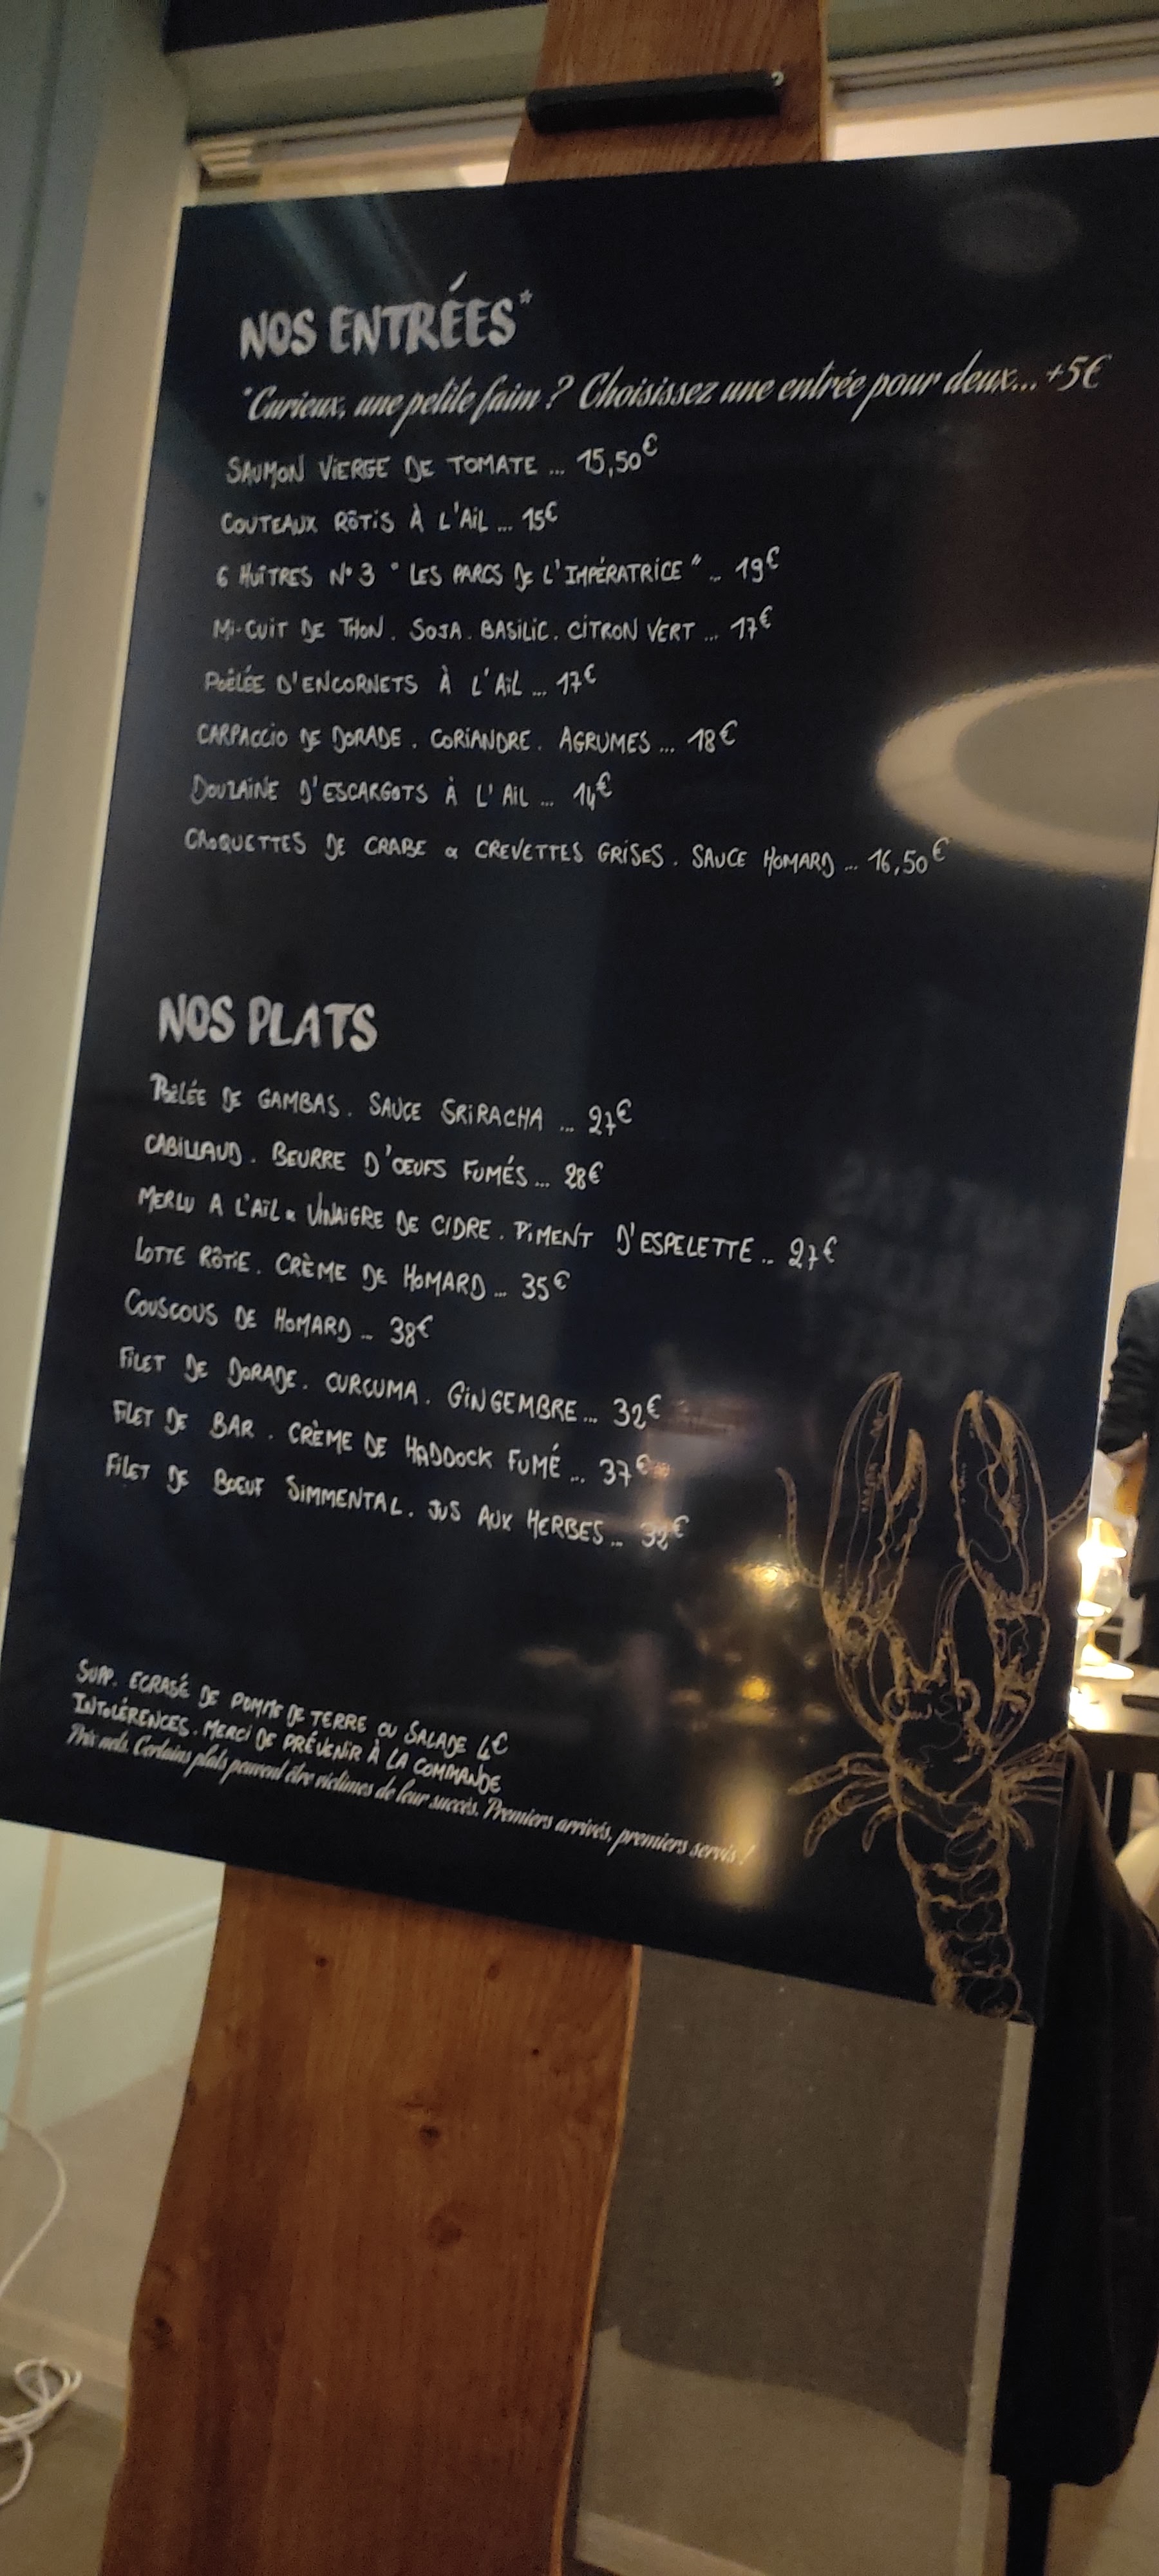 NOS ENTRÉES*
*Curieux, une petite faim ? Choisissez une entrée pour deux... +5€
SAUMON VIERGE DE TOMATE ... 15,50€
COUTEAUX RÔTIS À L'AIL ... 15€
6 HUÎTRES N°3 " LES PARCS DE L'IMPÉRATRICE " ... 19€
MI-CUIT DE THON . SOJA . BASILIC . CITRON VERT ... 17€
POÊLÉE D'ENCORNETS À L'AIL ... 17€
CARPACCIO DE DORADE . CORIANDRE . AGRUMES ... 18€
DOUZAINE D'ESCARGOTS À L'AIL ... 14€
CROQUETTES DE CRABE & CREVETTES GRISES . SAUCE HOMARD ... 16,50€
NOS PLATS
POÊLÉE DE GAMBAS . SAUCE SRIRACHA ... 27€
CABILLAUD . BEURRE D'OEUFS FUMÉS ... 28€
MERLU A L'AÏL & VINAIGRE DE CIDRE . PIMENT D'ESPELETTE ... 27€
LOTTE RÔTIE . CRÈME DE HOMARD ... 35€
COUSCOUS DE HOMARD ... 38€
FILET DE DORADE . CURCUMA . GINGEMBRE ... 32€
FILET DE BAR . CRÈME DE HADDOCK FUMÉ ... 37€
FILET DE BOEUF SIMMENTAL . JUS AUX HERBES ... 32€
SUPP. ECRASÉ DE POMME DE TERRE OU SALADE 4€
INTOLÉRENCES . MERCI DE PRÉVENIR À LA COMMANDE
Prix nets. Certains plats peuvent être victimes de leur succès. Premiers arrivés, premiers servis !